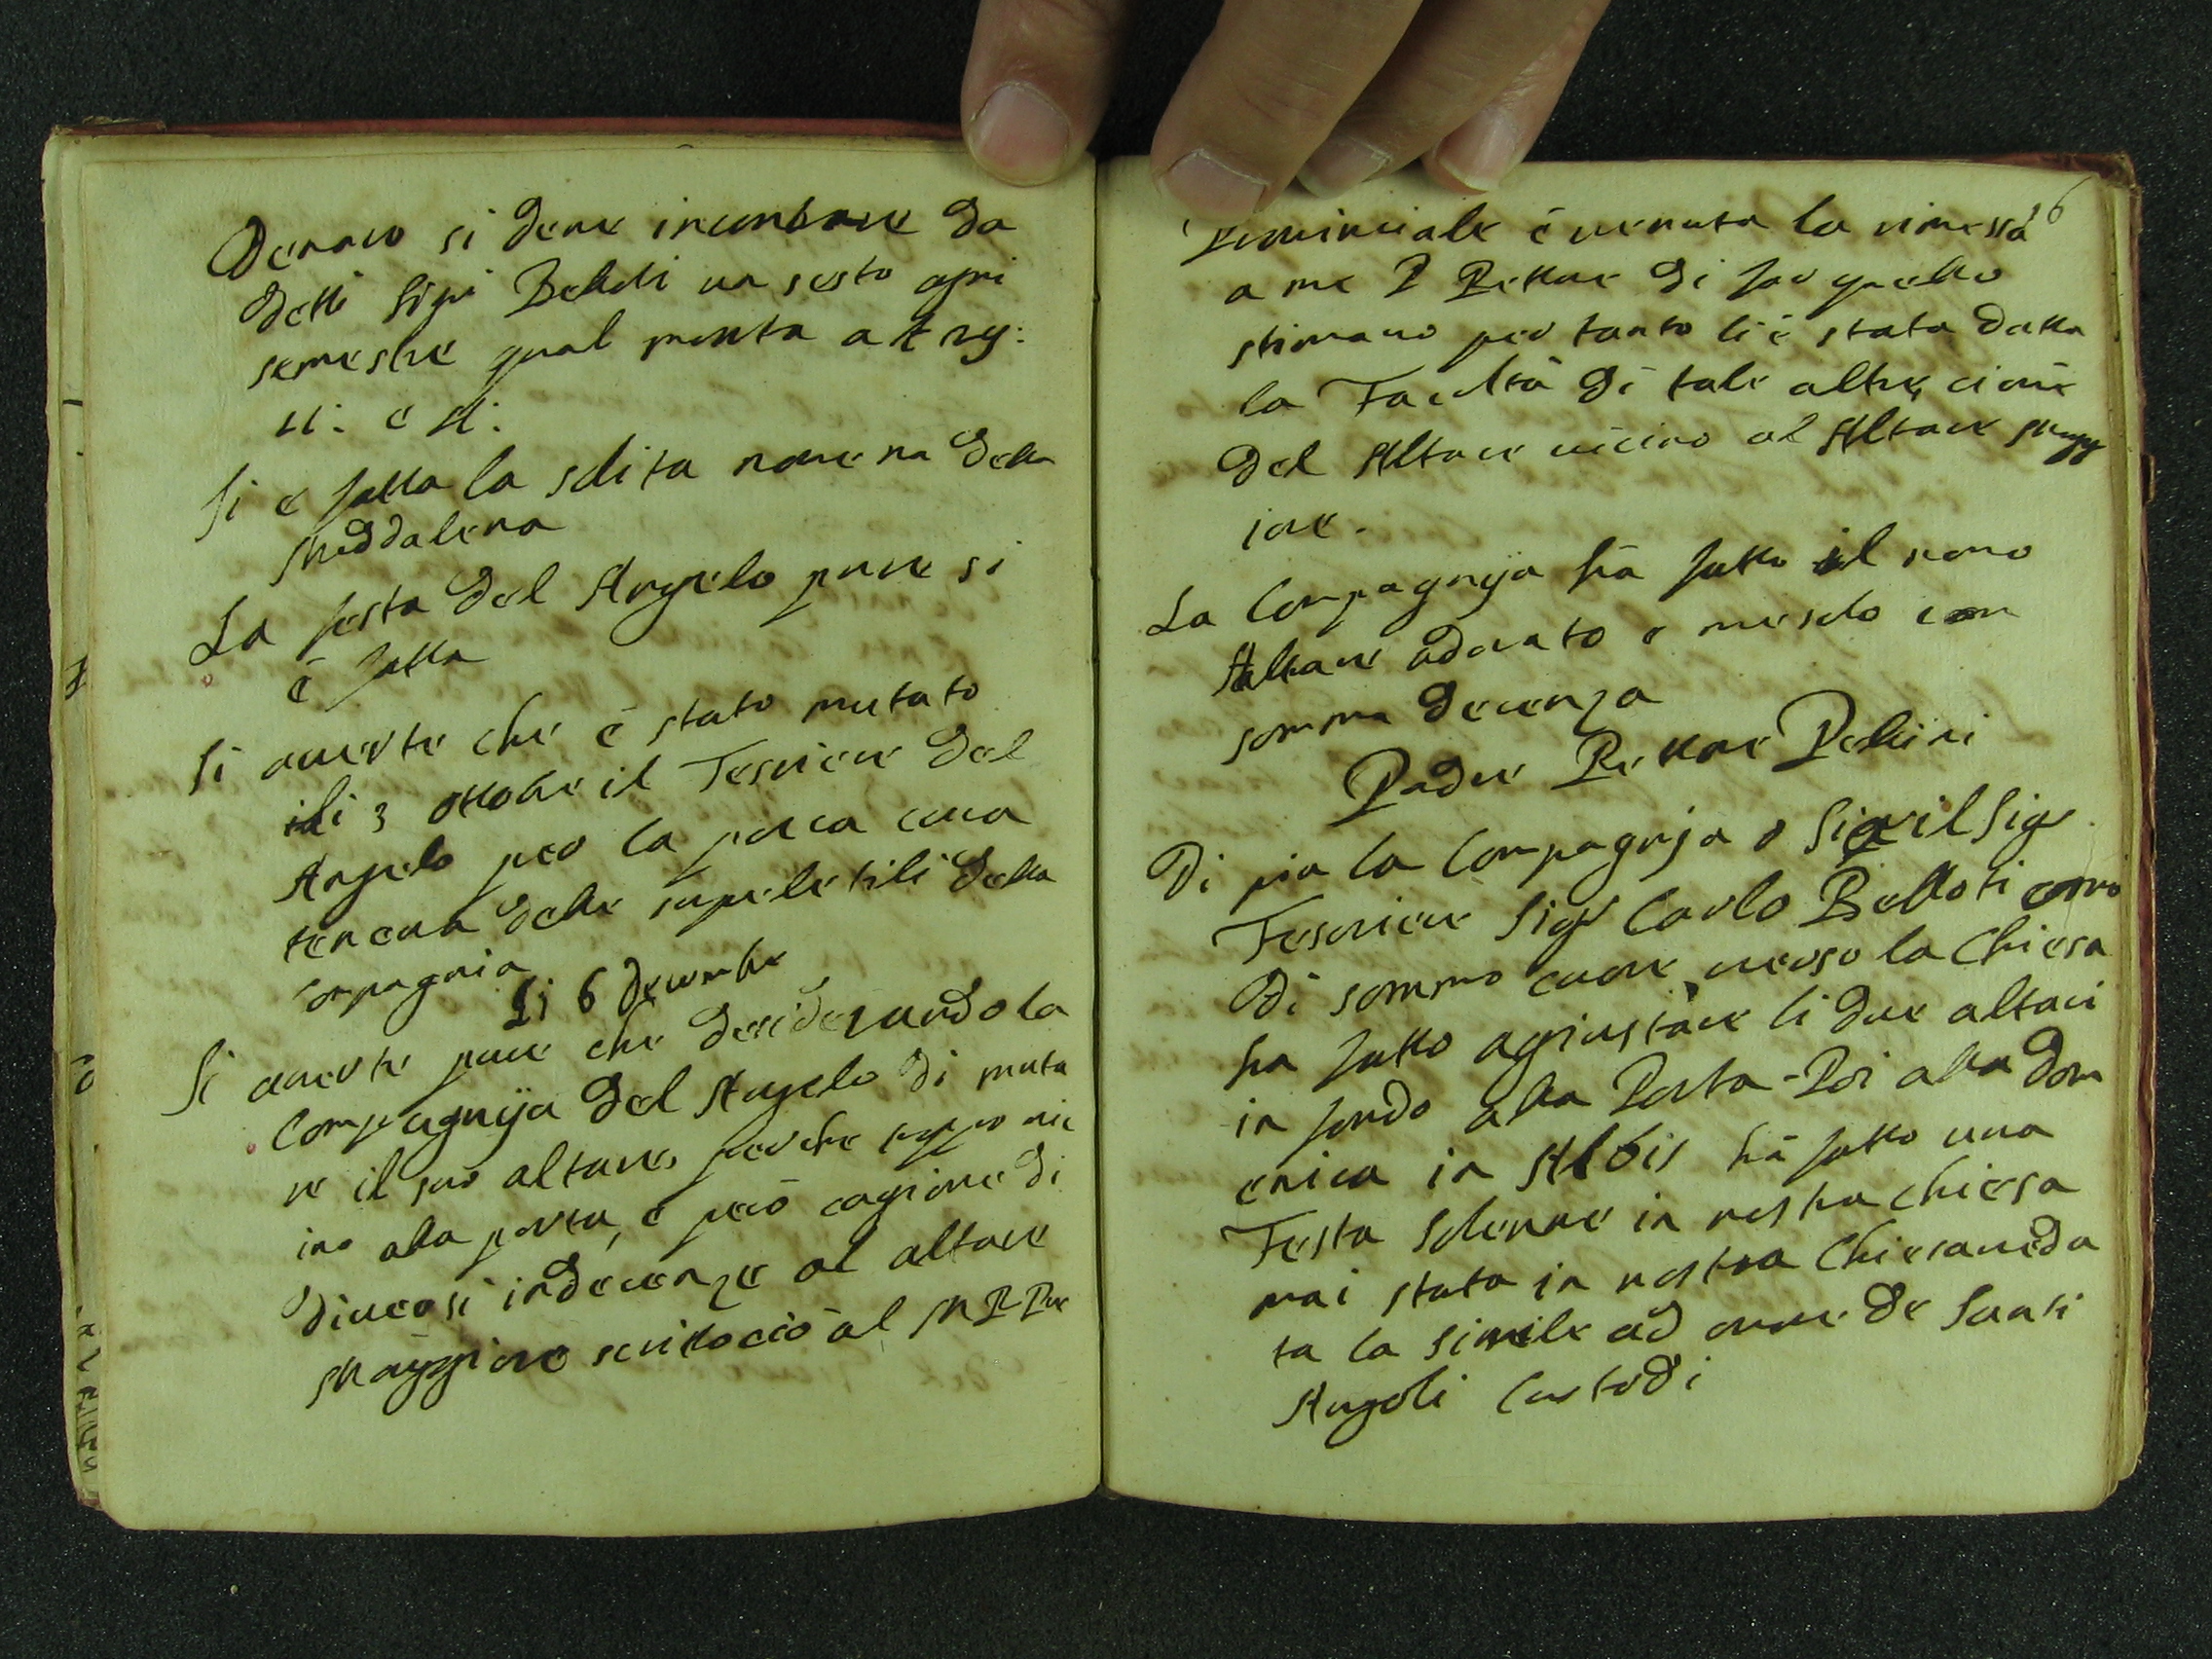 Denaro si deve incontrare da
detti Sigri Belloti un sesto ogni
semestre qual monta a
Si e fatta la solita novena della
Maddalena
La festa del Angelo pure si
è fatta
Si averte che è stato mutato
li 3 ottobre il Tesoriere del
Angelo per la poca cura
teneva delle supeletili della
Compagnia
Li 6 Decembre
Si averte pure che desiderando la
Compagnija del Angelo di muta
re il suo altare, perche troppo vic
ino alla porta, e però cagione di
diversi indecenze al altare
Maggiore scritto ciò al M R P Pro
16
Provinciale è venuta la rimessa
a me P Rettore di far quello
stimavo per tanto li è stata datta
la Facoltà di tale altre, cioiè
del Altare vicino al Altare Magg
iore.
La Compagnija hà fatto il novo
Altare adorato e messolo con
somma decenza
Padre Rettore Pellini
Di più la Compagnija o Sia il Sigr
Tesoriere Sigr Carlo Belloti omo
di sommo cuore verso la Chiesa
ha fatto agiustare li due altari
in fondo alla Porta - Poi alla Dom
enica in Albis hà fatto una
Festa Solenne in nostra chiesa
mai stata in nostra Chiesa veda
ta la simile ad onore de Santi
Angeli Custodi